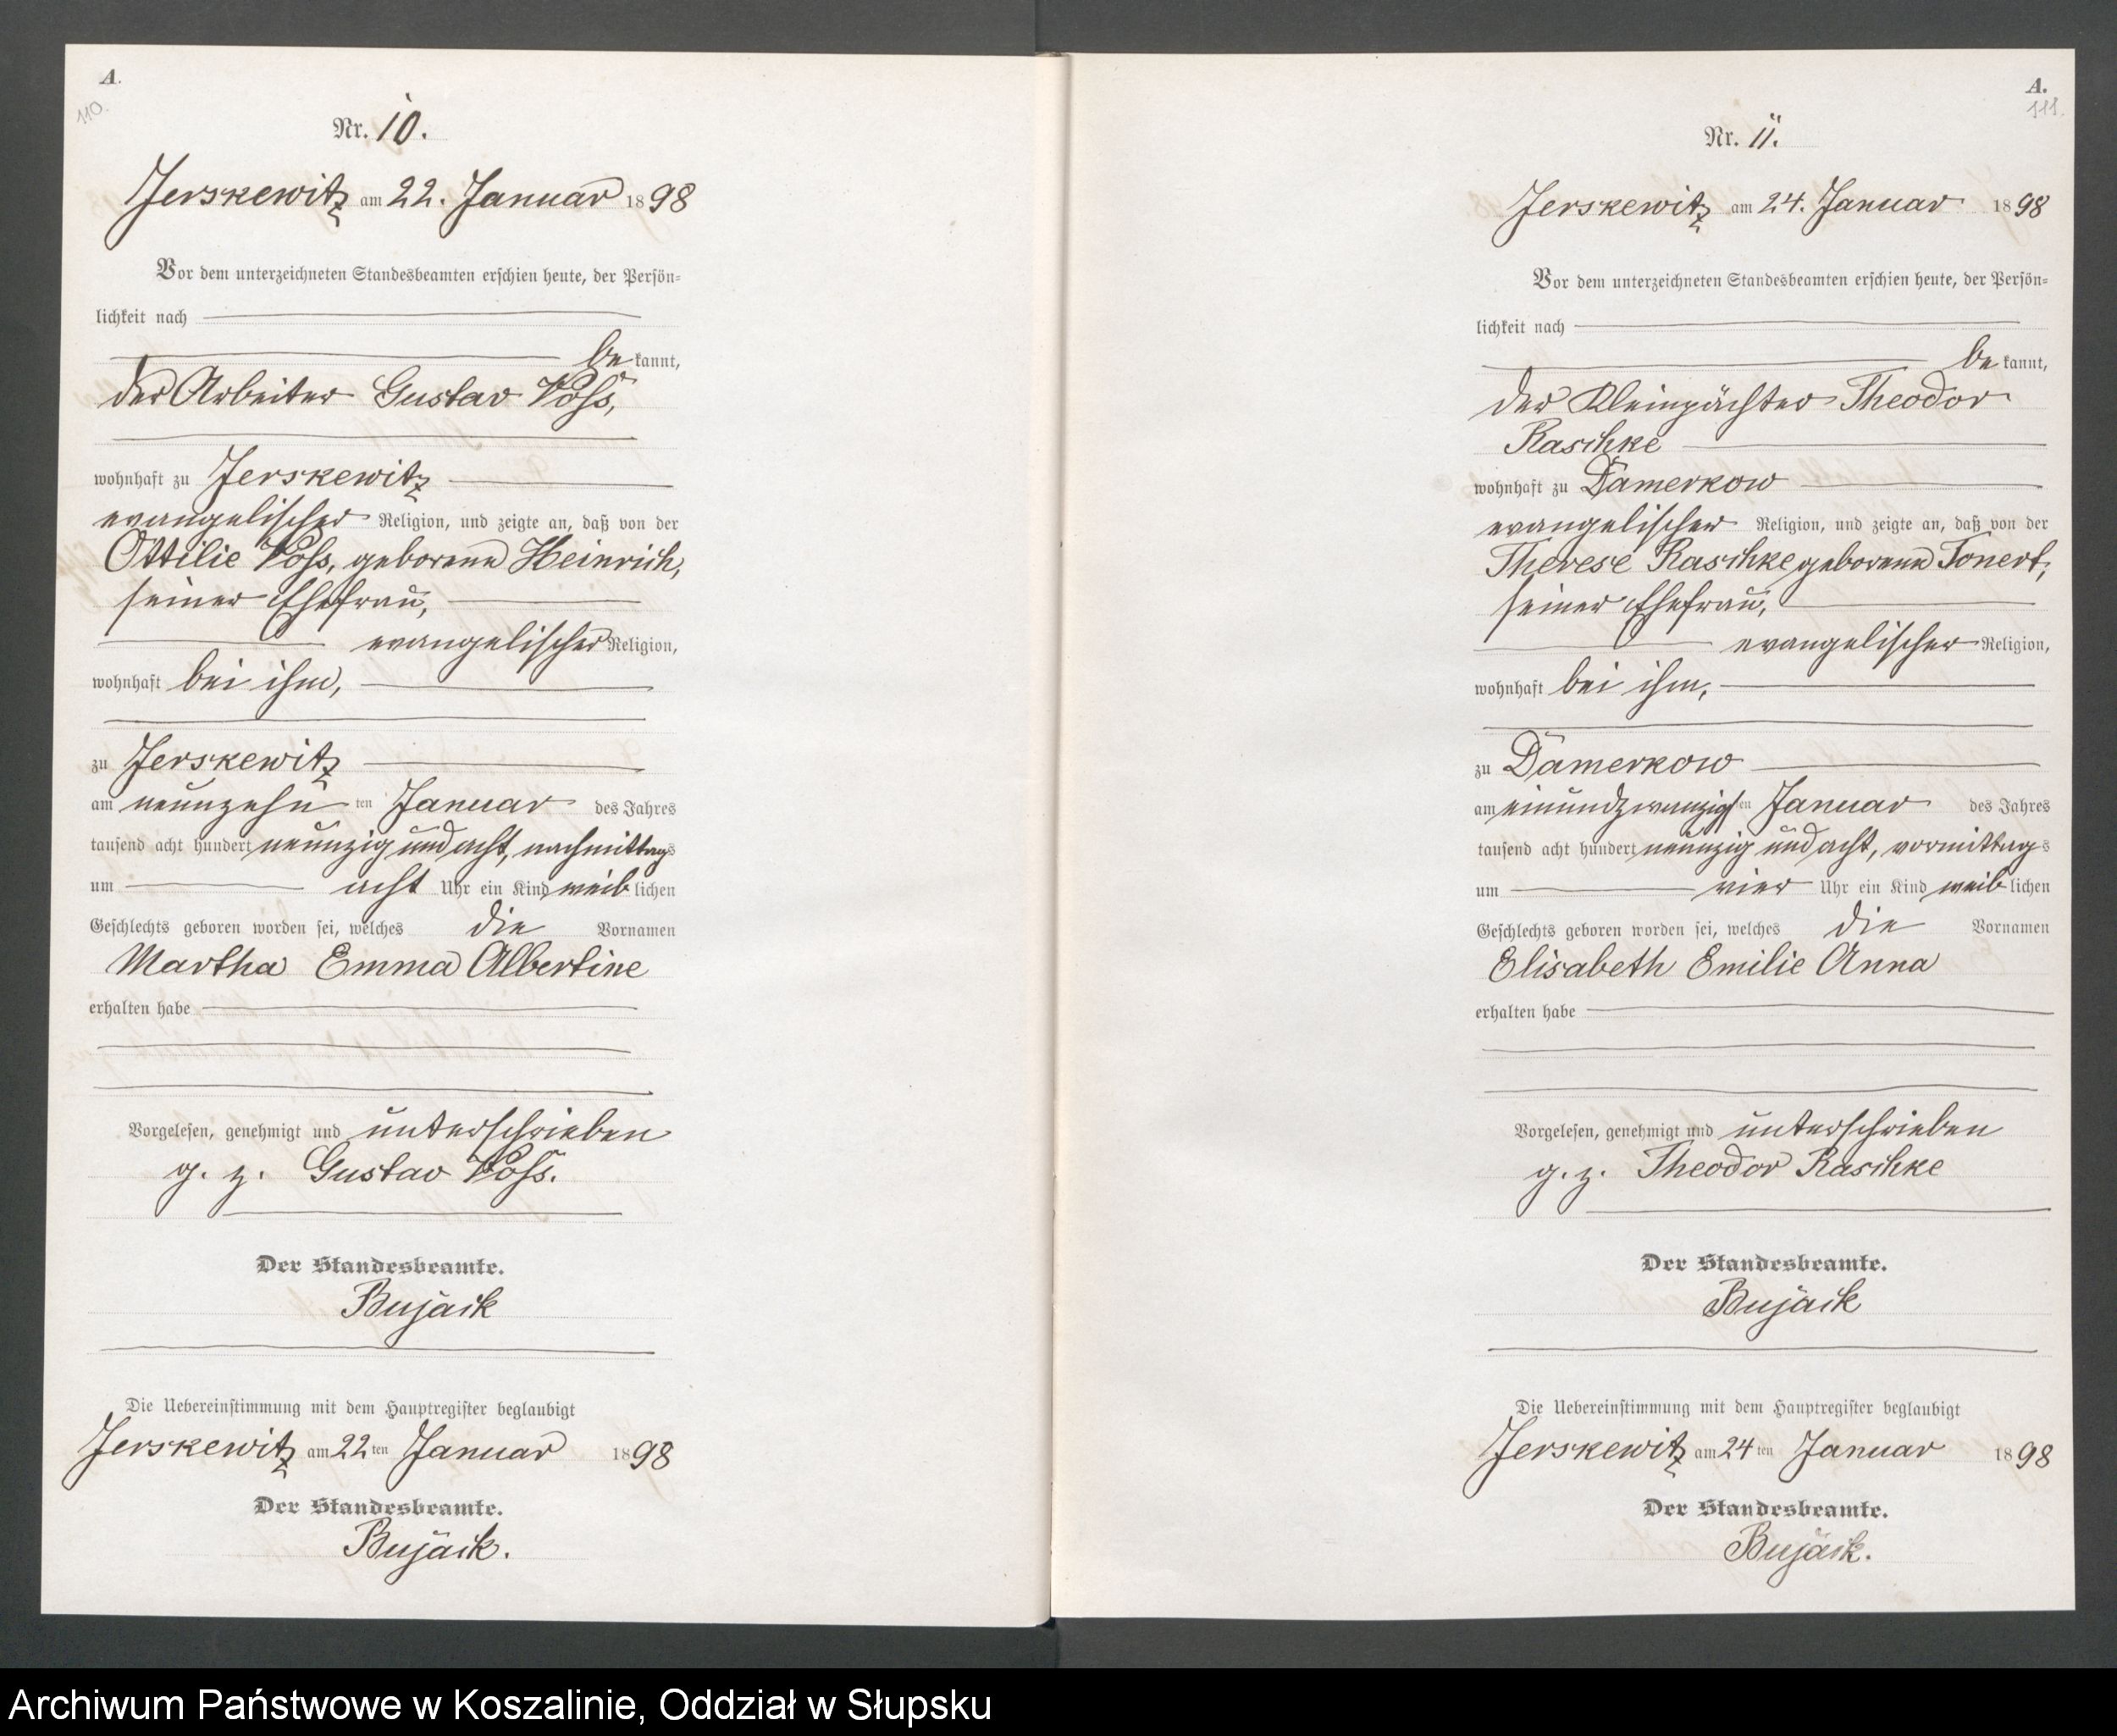 A.
110.
Nr. 10.
Jerskewitz am 22. Januar 1898
Vor dem unterzeichneten Standesbeamten erschien heute, der Persön-
lichkeit nach
bekannt,
der Arbeiter Gustav Voß,
wohnhaft zu Jerskewitz
evangelischer Religion, und zeigte an, daß von der
Ottilie Voß, geborene Heinrich,
seiner Ehefrau,
evangelischer Religion,
wohnhaft bei ihm,
zu Jerskewitz
am neunzehnten Januar des Jahres
tausend acht hundert neunzig und acht, nachmittags
um acht Uhr ein Kind weiblichen
Geschlechts geboren worden sei, welches die Vornamen
Martha Emma Albertine
erhalten habe
Vorgelesen, genehmigt und unterschrieben
g. z. Gustav Voß.
Der Standesbeamte.
Bujack
Die Uebereinstimmung mit dem Hauptregister beglaubigt
Jerskewitz am 22ten Januar 1898
Der Standesbeamte.
Bujack.
A.
111.
Nr. 11.
Jerskewitz am 24. Januar 1898
Vor dem unterzeichneten Standesbeamten erschien heute, der Persön-
lichkeit nach
bekannt,
der Kleinpächter Theodor
Raschke
wohnhaft zu Damerkow
evangelischer Religion, und zeigte an, daß von der
Therese Raschke geborene Tonert,
seiner Ehefrau,
evangelischer Religion,
wohnhaft bei ihm,
zu Damerkow
am einundzwanzigsten Januar des Jahres
tausend acht hundert neunzig und acht, vormittags
um vier Uhr ein Kind weiblichen
Geschlechts geboren worden sei, welches die Vornamen
Elisabeth Emilie Anna
erhalten habe
Vorgelesen, genehmigt und unterschrieben
g. z. Theodor Raschke
Der Standesbeamte.
Bujack
Die Uebereinstimmung mit dem Hauptregister beglaubigt
Jerskewitz am 24ten Januar 1898
Der Standesbeamte.
Bujack.
Archiwum Państwowe w Koszalinie, Oddział w Słupsku